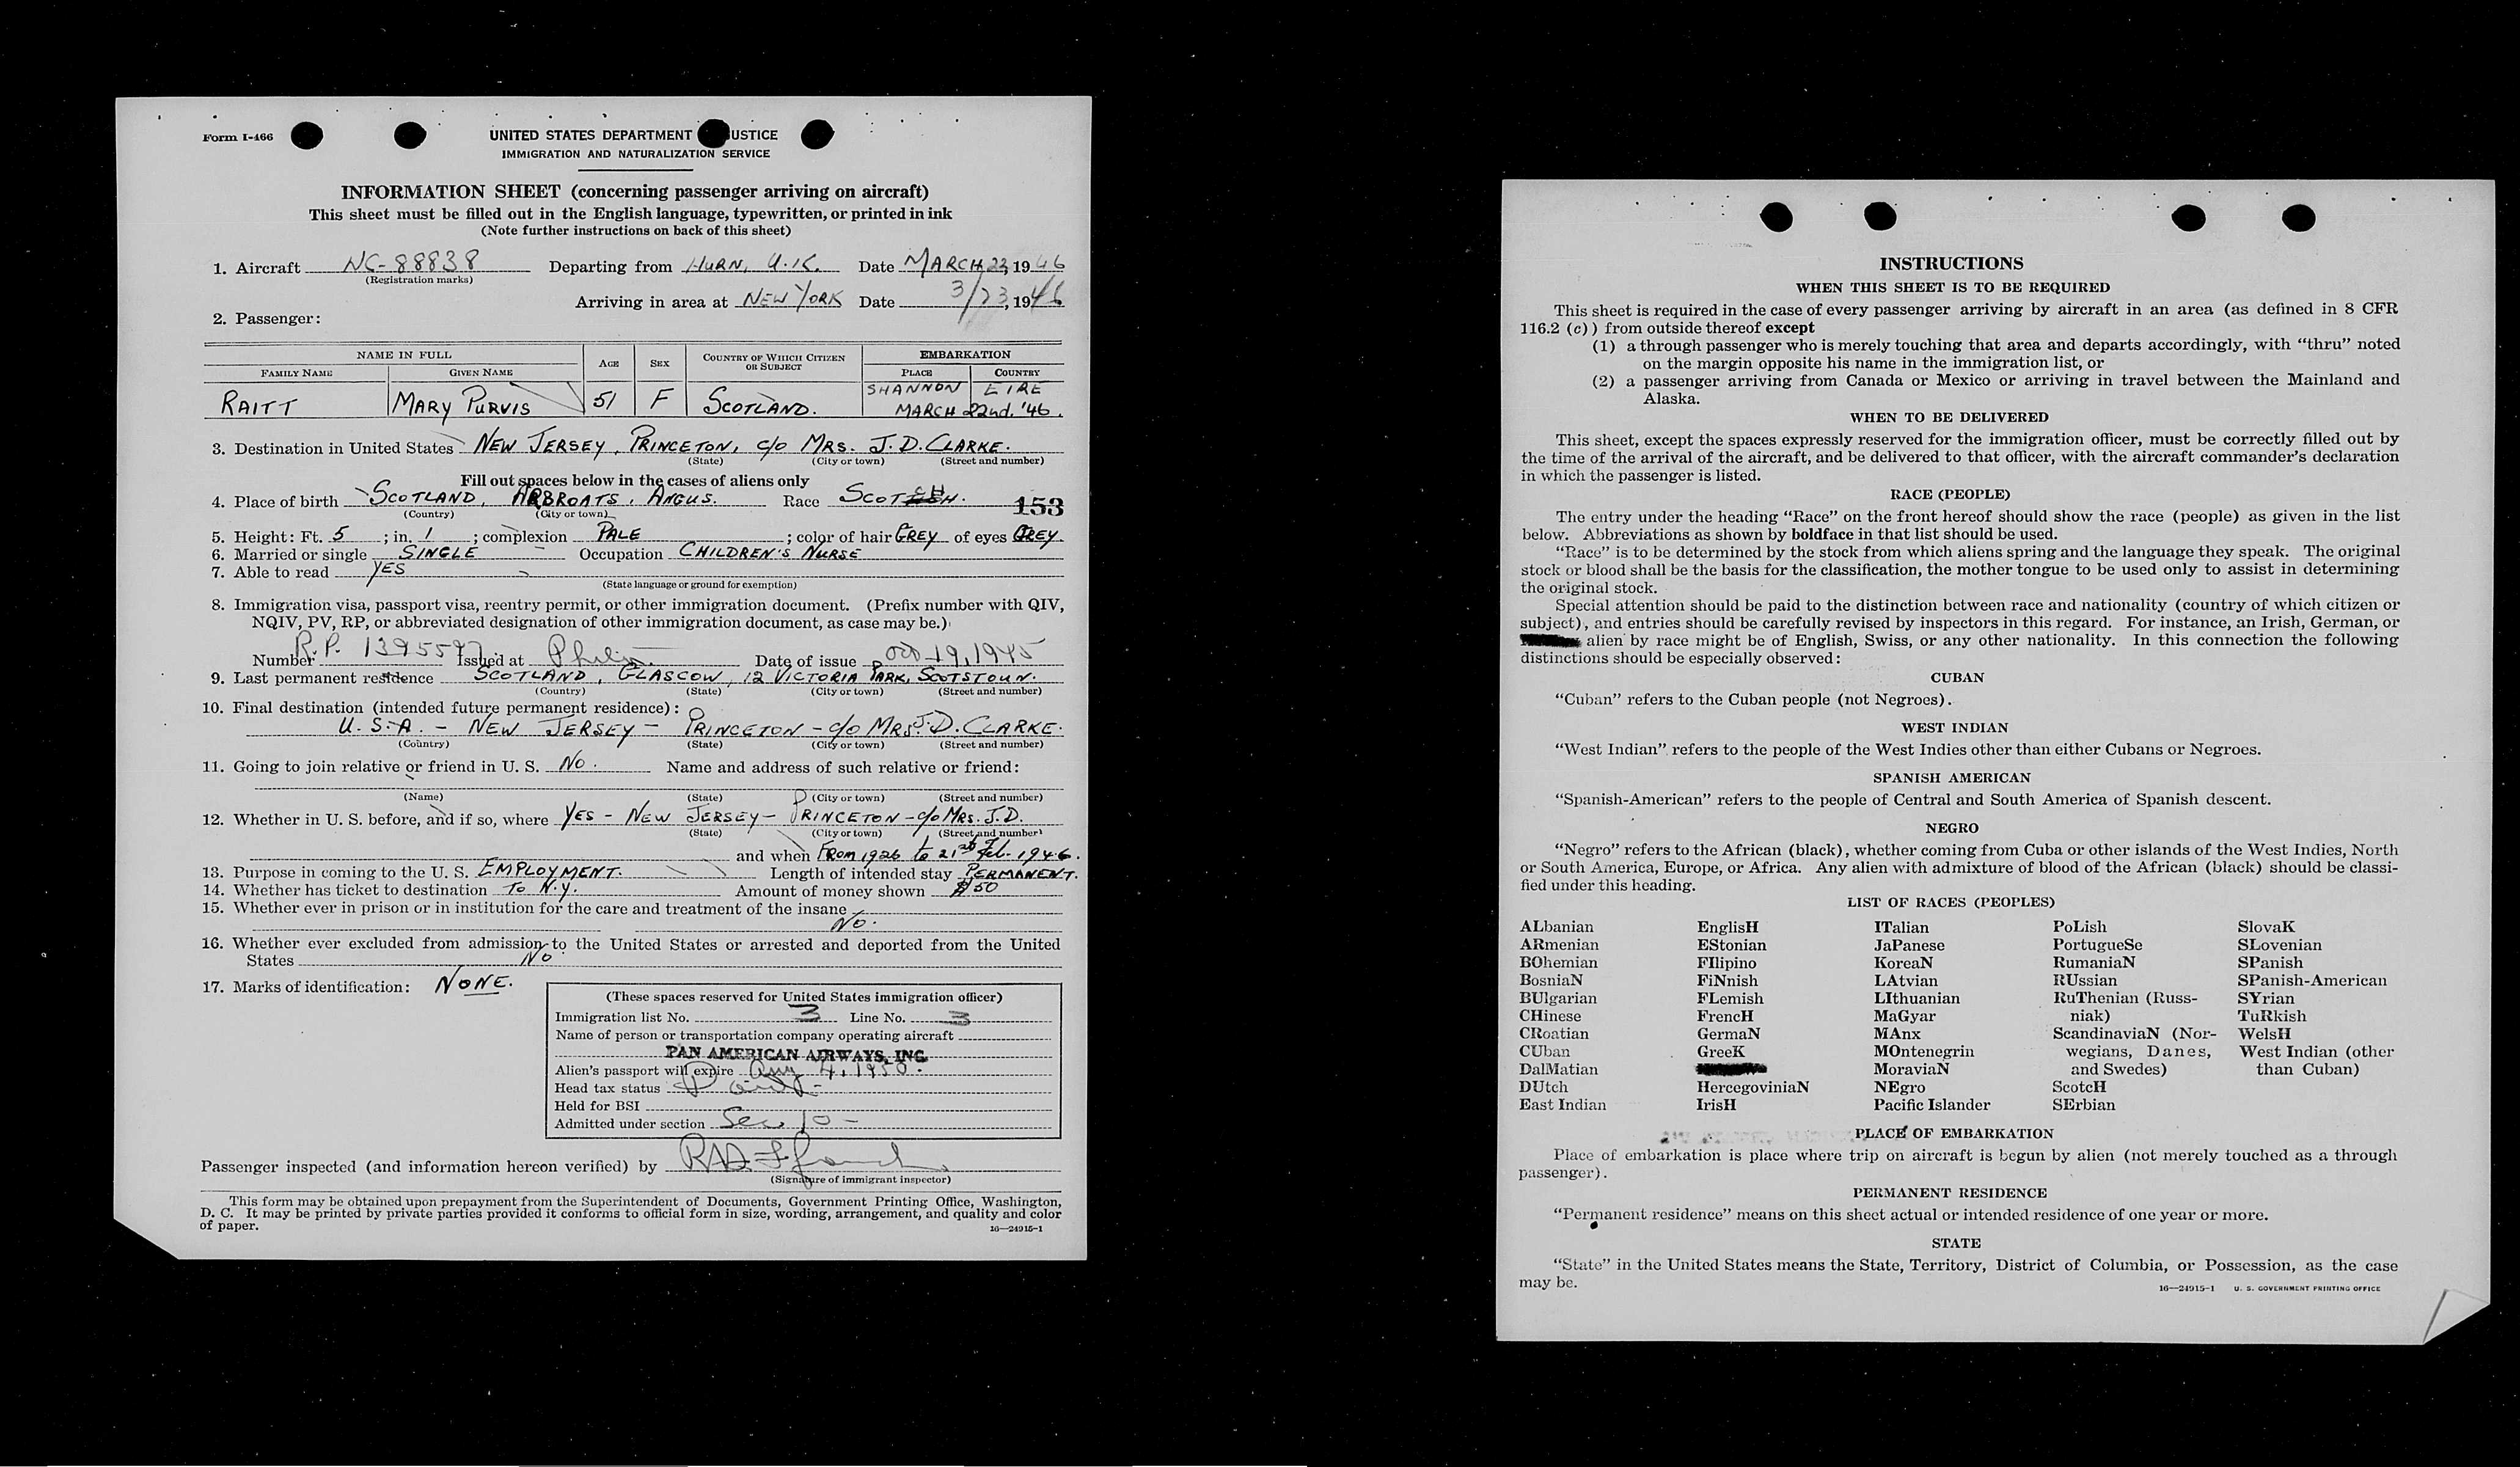 Form I-466
UNITED STATES DEPARTMENT USTICE
IMMIGRATION AND NATURALIZATION SERVICE
INFORMATION SHEET (concerning passenger arriving on aircraft)
This sheet must be filled out in the English language, typewritten, or printed in ink
(Note further instructions on back of this sheet)
1. Aircraft NC-88838 Departing from HURN, U.K. Date MARCH 22, 1946
(Registration marks)
Arriving in area at NEW YORK Date 3/23, 1946
2. Passenger:
NAME IN FULL AGE SEX COUNTRY OF WHICH CITIZEN OR SUBJECT EMBARKATION
FAMILY NAME GIVEN NAME PLACE COUNTRY
SHANNON EIRE
RAITT MARY PURVIS 51 F SCOTLAND. MARCH 22nd. '46.
3. Destination in United States NEW JERSEY, PRINCETON, c/o MRS. J. D. CLARKE.
(State) (City or town) (Street and number)
Fill out spaces below in the cases of aliens only
4. Place of birth SCOTLAND, ARBROATS, ANGUS. Race SCOTCH. 153
(Country) (City or town)
5. Height: Ft. 5 ; in. 1 ; complexion PALE ; color of hair GREY of eyes GREY
6. Married or single SINGLE Occupation CHILDREN'S NURSE
7. Able to read YES
(State language or ground for exemption)
8. Immigration visa, passport visa, reentry permit, or other immigration document. (Prefix number with QIV,
NQIV, PV, RP, or abbreviated designation of other immigration document, as case may be.)
Number R.P. 1395597 Issued at Phila. Date of issue Oct 19, 1945
9. Last permanent residence SCOTLAND, GLASCOW, 12 VICTORIA PARK, SCOTSTOUN.
(Country) (State) (City or town) (Street and number)
10. Final destination (intended future permanent residence):
U.S.A. - NEW JERSEY - PRINCETON - c/o MRS. J. D. CLARKE.
(Country) (State) (City or town) (Street and number)
11. Going to join relative or friend in U. S. NO. Name and address of such relative or friend:
(Name) (State) (City or town) (Street and number)
12. Whether in U. S. before, and if so, where YES - NEW JERSEY - PRINCETON - c/o MRS. J. D.
(State) (City or town) (Street and number)
and when FROM 1926 to 21st Feb. 1946.
13. Purpose in coming to the U. S. EMPLOYMENT. Length of intended stay PERMANENT.
14. Whether has ticket to destination TO N.Y. Amount of money shown $50
15. Whether ever in prison or in institution for the care and treatment of the insane
NO.
16. Whether ever excluded from admission to the United States or arrested and deported from the United
States NO.
17. Marks of identification: NONE.
(These spaces reserved for United States immigration officer)
Immigration list No. 3 Line No. 3
Name of person or transportation company operating aircraft
PAN AMERICAN AIRWAYS, INC.
Alien's passport will expire Aug 4, 1950.
Head tax status
Held for BSI
Admitted under section Sec 10 -
Passenger inspected (and information hereon verified) by
(Signature of immigrant inspector)
This form may be obtained upon prepayment from the Superintendent of Documents, Government Printing Office, Washington,
D. C. It may be printed by private parties provided it conforms to official form in size, wording, arrangement, and quality and color
of paper.
16—24915-1
INSTRUCTIONS
WHEN THIS SHEET IS TO BE REQUIRED
This sheet is required in the case of every passenger arriving by aircraft in an area (as defined in 8 CFR
116.2 (c)) from outside thereof except
(1) a through passenger who is merely touching that area and departs accordingly, with "thru" noted
on the margin opposite his name in the immigration list, or
(2) a passenger arriving from Canada or Mexico or arriving in travel between the Mainland and
Alaska.
WHEN TO BE DELIVERED
This sheet, except the spaces expressly reserved for the immigration officer, must be correctly filled out by
the time of the arrival of the aircraft, and be delivered to that officer, with the aircraft commander's declaration
in which the passenger is listed.
RACE (PEOPLE)
The entry under the heading "Race" on the front hereof should show the race (people) as given in the list
below. Abbreviations as shown by boldface in that list should be used.
"Race" is to be determined by the stock from which aliens spring and the language they speak. The original
stock or blood shall be the basis for the classification, the mother tongue to be used only to assist in determining
the original stock.
Special attention should be paid to the distinction between race and nationality (country of which citizen or
subject), and entries should be carefully revised by inspectors in this regard. For instance, an Irish, German, or
alien by race might be of English, Swiss, or any other nationality. In this connection the following
distinctions should be especially observed:
CUBAN
"Cuban" refers to the Cuban people (not Negroes).
WEST INDIAN
"West Indian" refers to the people of the West Indies other than either Cubans or Negroes.
SPANISH AMERICAN
"Spanish-American" refers to the people of Central and South America of Spanish descent.
NEGRO
"Negro" refers to the African (black), whether coming from Cuba or other islands of the West Indies, North
or South America, Europe, or Africa. Any alien with admixture of blood of the African (black) should be classi-
fied under this heading.
LIST OF RACES (PEOPLES)
ALbanian EnglisH ITalian PoLish SlovaK
ARmenian EStonian JaPanese PortugueSe SLovenian
BOhemian FIlipino KoreaN RumaniaN SPanish
BosniaN FiNnish LAtvian RUssian SPanish-American
BUlgarian FLemish LIthuanian RuThenian (Russ- SYrian
CHinese FrencH MaGyar niak) TuRkish
CRoatian GermaN MAnx ScandinaviaN (Nor- WelsH
CUban GreeK MOntenegrin wegians, Danes, West Indian (other
DalMatian MoraviaN and Swedes) than Cuban)
DUtch HercegoviniaN NEgro ScotcH
East Indian IrisH Pacific Islander SErbian
PLACE OF EMBARKATION
Place of embarkation is place where trip on aircraft is begun by alien (not merely touched as a through
passenger).
PERMANENT RESIDENCE
"Permanent residence" means on this sheet actual or intended residence of one year or more.
STATE
"State" in the United States means the State, Territory, District of Columbia, or Possession, as the case
may be.
16—24915-1 U. S. GOVERNMENT PRINTING OFFICE